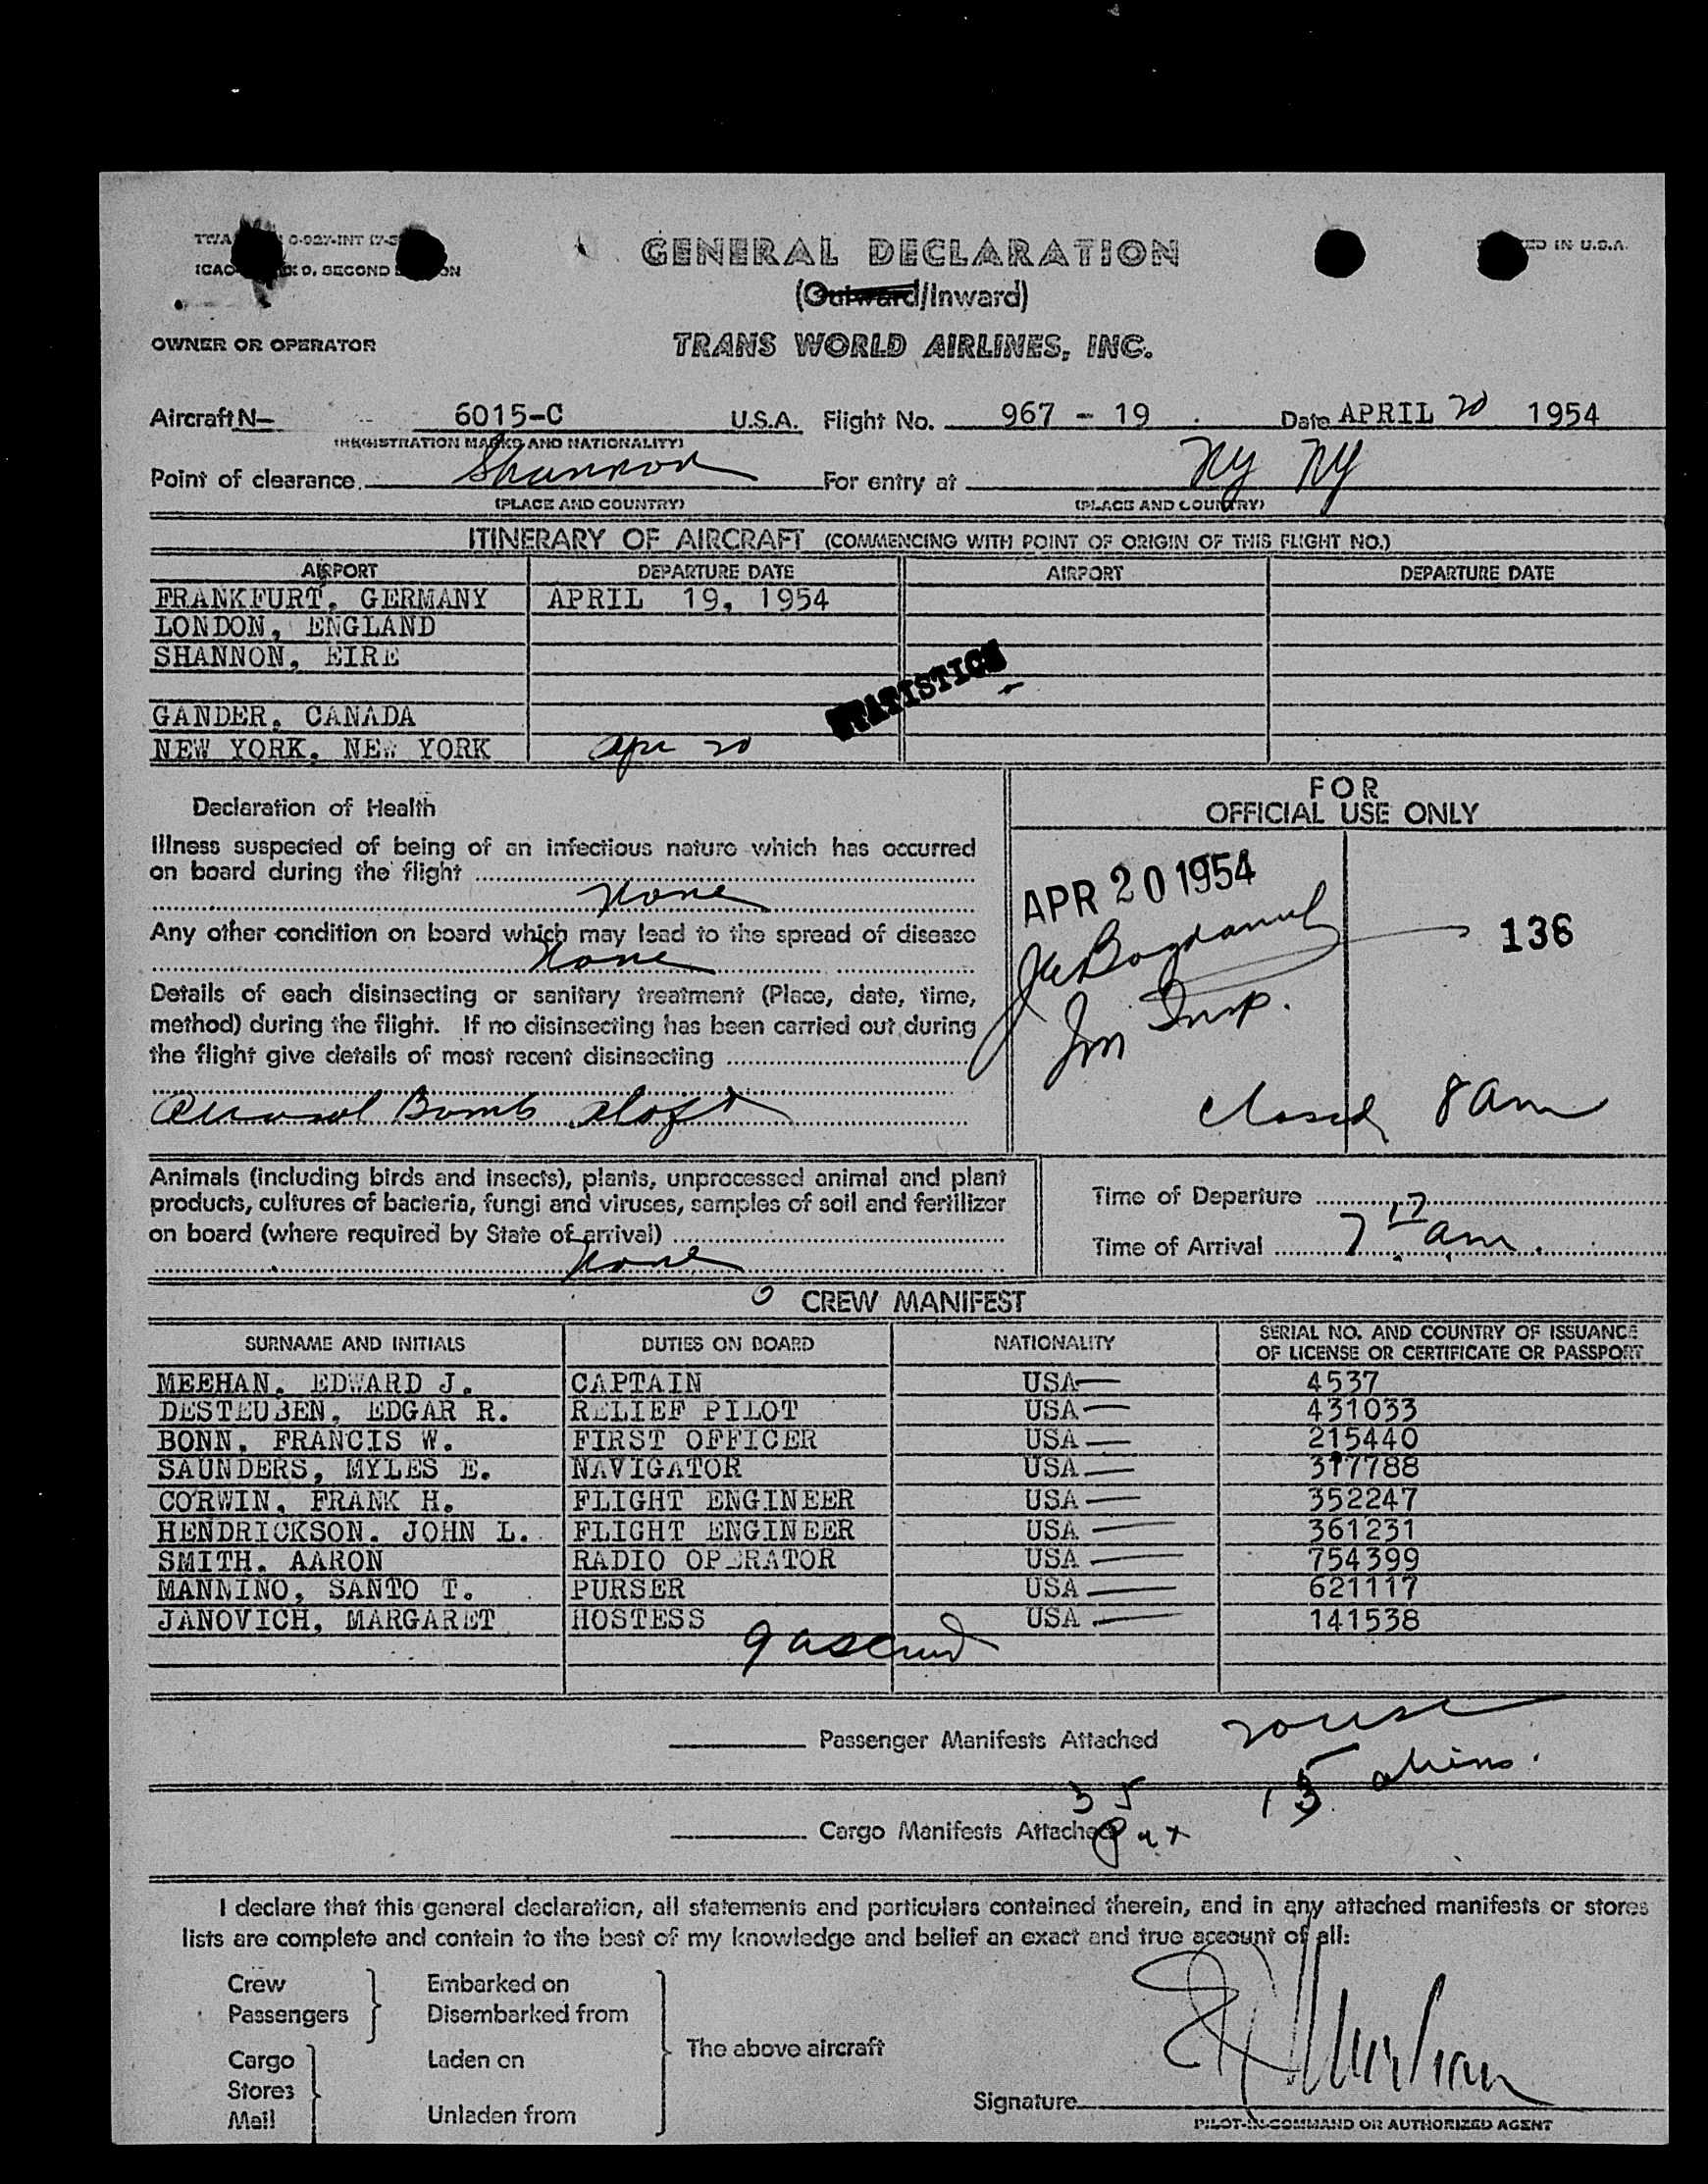 GENERAL DECLARATION
(Outward/Inward)
OWNER OR OPERATOR TRANS WORLD AIRLINES, INC.
Aircraft N— 6015-C U.S.A. Flight No. 967 - 19 Date APRIL 20 1954
(REGISTRATION MARKS AND NATIONALITY)
Point of clearance Shannon For entry at NY NY
(PLACE AND COUNTRY) (PLACE AND COUNTRY)
ITINERARY OF AIRCRAFT (COMMENCING WITH POINT OF ORIGIN OF THIS FLIGHT NO.)
AIRPORT DEPARTURE DATE AIRPORT DEPARTURE DATE
FRANKFURT, GERMANY APRIL 19, 1954
LONDON, ENGLAND
SHANNON, EIRE
STATISTICS
GANDER, CANADA
NEW YORK, NEW YORK Apr 20
Declaration of Health
Illness suspected of being of an infectious nature which has occurred
on board during the flight
None
Any other condition on board which may lead to the spread of disease
None
Details of each disinsecting or sanitary treatment (Place, date, time,
method) during the flight. If no disinsecting has been carried out during
the flight give details of most recent disinsecting
Aerosol Bomb aloft
FOR
OFFICIAL USE ONLY
APR 20 1954
136
Im Insp.
closed 8 am
Animals (including birds and insects), plants, unprocessed animal and plant
products, cultures of bacteria, fungi and viruses, samples of soil and fertilizer
on board (where required by State of arrival)
None
Time of Departure
Time of Arrival 7 17 am
CREW MANIFEST
SURNAME AND INITIALS DUTIES ON BOARD NATIONALITY SERIAL NO. AND COUNTRY OF ISSUANCE
OF LICENSE OR CERTIFICATE OR PASSPORT
MEEHAN, EDWARD J. CAPTAIN USA 4537
DESTEUBEN, EDGAR R. RELIEF PILOT USA 431033
BONN, FRANCIS W. FIRST OFFICER USA 215440
SAUNDERS, MYLES E. NAVIGATOR USA 317788
CORWIN, FRANK H. FLIGHT ENGINEER USA 352247
HENDRICKSON, JOHN L. FLIGHT ENGINEER USA 361231
SMITH, AARON RADIO OPERATOR USA 754399
MANNINO, SANTO T. PURSER USA 621117
JANOVICH, MARGARET HOSTESS USA 141538
Passenger Manifests Attached 20 USC
15 aliens.
35
Cargo Manifests Attached Pax
I declare that this general declaration, all statements and particulars contained therein, and in any attached manifests or stores
lists are complete and contain to the best of my knowledge and belief an exact and true account of all:
Crew Embarked on
Passengers Disembarked from
The above aircraft
Cargo Laden on
Stores
Mail Unladen from
Signature
PILOT-IN-COMMAND OR AUTHORIZED AGENT